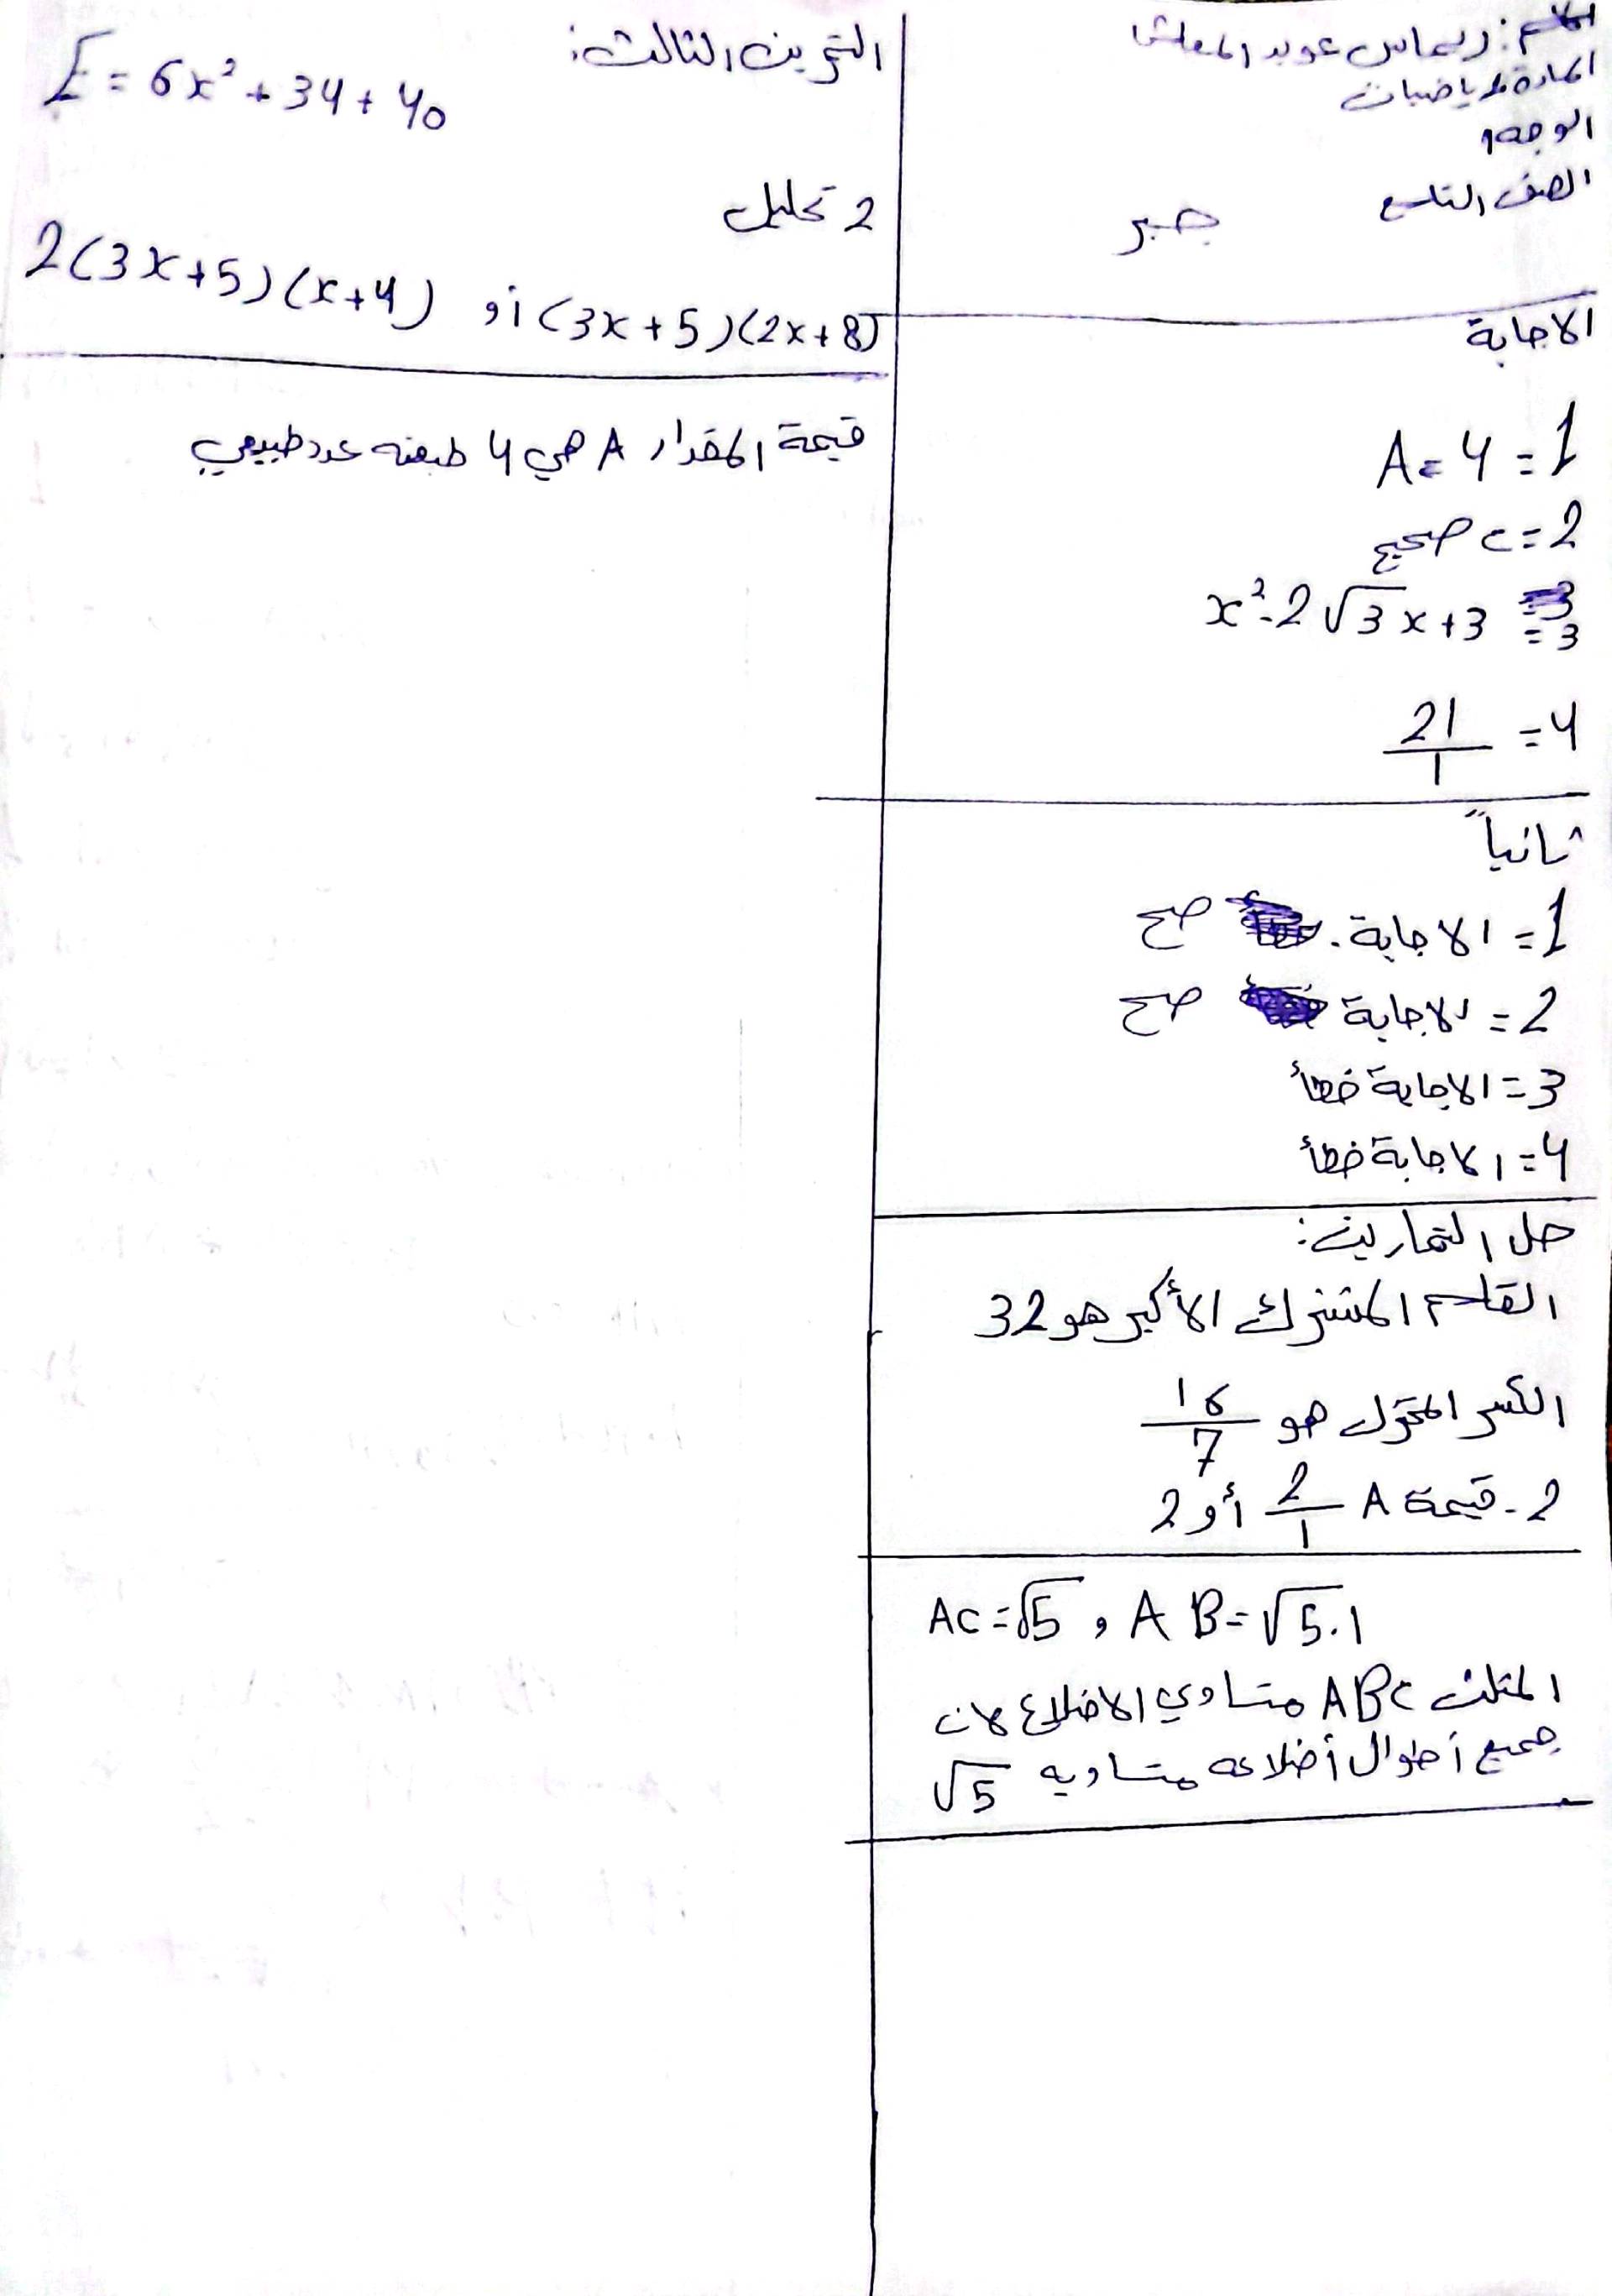 الاسم: ريماس عويد المعلشا
المادة رياضيات
الوجه 1
الصف التاسع
جبر
الاجابة
1 = A = 4
2 = c صحيح
3 = x² - 2√3 x + 3
4 = 21/1
ثانياً
1 = الاجابة. صح
2 = الاجابة صح
3 = الاجابة خطأ
4 = الاجابة خطأ
حل التمارين:
القاسم المشترك الأكبر هو 32
الكسر المختزل هو 16/7
2 - قيمة A 2/1 أو 2
AC = √5 , AB = √5 . 1
المثلث ABC متساوي الاضلاع لان
جميع أطوال أضلاعه متساويه √5
التمرين الثالث:
E = 6x² + 34 + 40
2 تحليل
2(3x+5)(x+4) أو (3x+5)(2x+8)
قيمة المقدار A هي 4 طبعنه عدد طبيعي